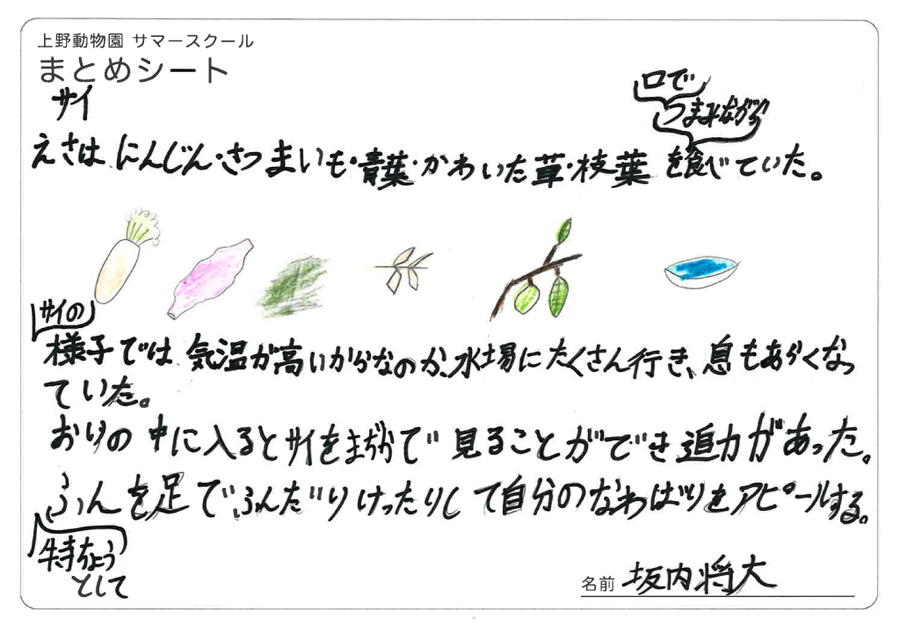 上野動物園 サマースクール
まとめシート
サイ
口で
つまみながら
えさは にんじん・さつまいも・青葉・かわいた草・枝葉 を食べていた。
サイの
様子では 気温が高いからなのか、水場にたくさん行き、息もあらくなっ
ていた。
おりの中に入るとサイをまぢかで見ることができ迫力があった。
ふんを足でふんだりけったりして自分のなわばりをアピールする。
特ちょう
として
名前 坂内将大